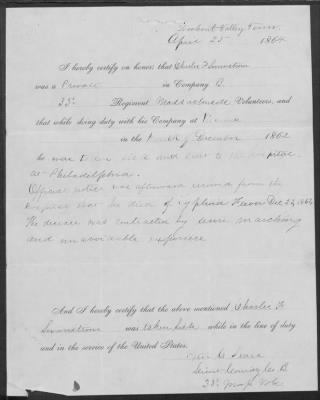 Lookout Valley Tenn.
April 25 1864
I hereby certify on honor, that Charles F
was a Private in Company B.
33d Regiment Massachusetts Volunteers, and
that while doing duty with his Company at
in the Month of December 1862
he was taken sick and sent to the hospital
at Philadelphia.
Official notice was afterward received from the
that he died of Typhoid Fever Dec 29, 1862
The disease was contracted by severe marching
and unavoidable exposure
And I hereby certify that the above mentioned Charles F
was taken sick while in the line of duty
and in the service of the United States.
Co. B.
33d Mass Vols